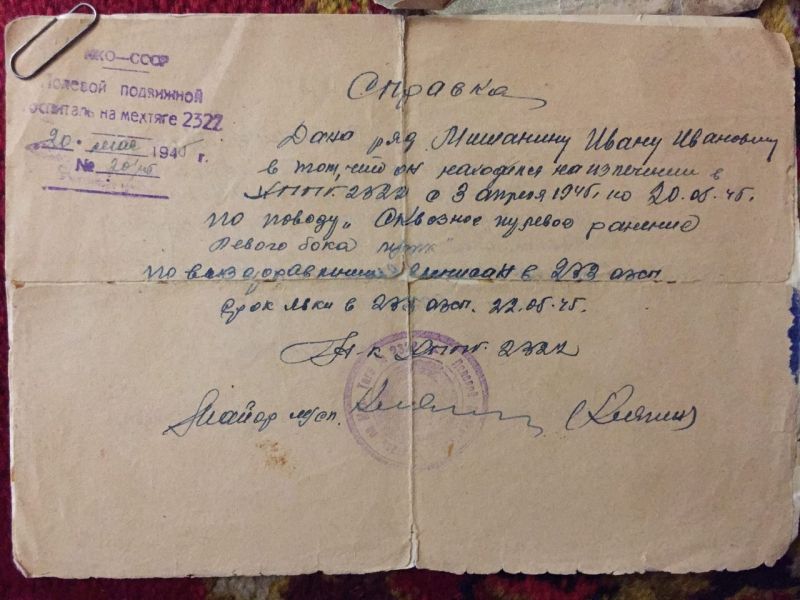 НКО—СССР
Полевой подвижной
госпиталь на мехтяге 2322
20 мая 1945 г.
№
Справка
Дана ряд Мишанину Ивану Ивановичу
в том, что он находился на излечении в
ХППГ 2322 с 3 апреля 1945г. по 20.05.45.
по поводу „Сквозное пулевое ранение
Левого бока
По выздоравлению выписан в
Срок явки в 22.05.45.
Н-к ХППГ. 2322
Майор м/сл.